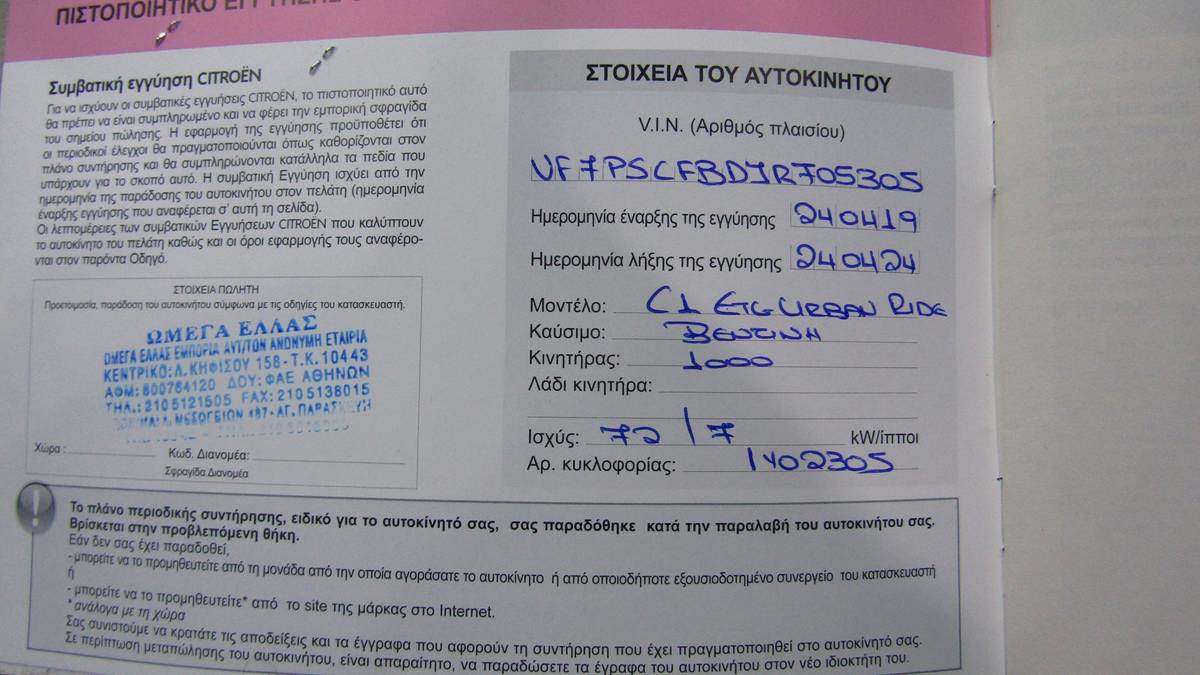 ΠΙΣΤΟΠΟΙΗΤΙΚΟ
Συμβατική εγγύηση CITROËN
Για να ισχύουν οι συμβατικές εγγυήσεις CITROËN, το πιστοποιητικό αυτό
θα πρέπει να είναι συμπληρωμένο και να φέρει την εμπορική σφραγίδα
του σημείου πώλησης. Η εφαρμογή της εγγύησης προϋποθέτει ότι
οι περιοδικοί έλεγχοι θα πραγματοποιούνται όπως καθορίζονται στον
πλάνο συντήρησης και θα συμπληρώνονται κατάλληλα τα πεδία που
υπάρχουν για το σκοπό αυτό. Η συμβατική Εγγύηση ισχύει από την
ημερομηνία της παράδοσης του αυτοκινήτου στον πελάτη (ημερομηνία
έναρξης εγγύησης που αναφέρεται σ' αυτή τη σελίδα).
Οι λεπτομέρειες των συμβατικών Εγγυήσεων CITROËN που καλύπτουν
το αυτοκίνητο του πελάτη καθώς και οι όροι εφαρμογής τους αναφέρο-
νται στον παρόντα Οδηγό.
ΣΤΟΙΧΕΙΑ ΠΩΛΗΤΗ
Προετοιμασία, παράδοση του αυτοκινήτου σύμφωνα με τις οδηγίες του κατασκευαστή.
ΩΜΕΓΑ ΕΛΛΑΣ
ΩΜΕΓΑ ΕΛΛΑΣ ΕΜΠΟΡΙΑ ΑΥΤ/ΤΩΝ ΑΝΩΝΥΜΗ ΕΤΑΙΡΙΑ
ΚΕΝΤΡΙΚΟ: Λ. ΚΗΦΙΣΟΥ 158 - Τ.Κ. 10443
ΑΦΜ: 800764120 ΔΟΥ: ΦΑΕ ΑΘΗΝΩΝ
ΤΗΛ.: 210 5121505 FAX: 210 5138015
Λ. ΜΕΣΟΓΕΙΩΝ 487 - ΑΓ. ΠΑΡΑΣΚΕΥΗ
Χώρα :
Κωδ. Διανομέα:
Σφραγίδα Διανομέα
ΣΤΟΙΧΕΙΑ ΤΟΥ ΑΥΤΟΚΙΝΗΤΟΥ
V.I.N. (Αριθμός πλαισίου)
VF7PSCFBDJR705305
Ημερομηνία έναρξης της εγγύησης 240419
Ημερομηνία λήξης της εγγύησης 240424
Μοντέλο: C1 ETG URBAN RIDE
Καύσιμο: ΒΕΝΖΙΝΗ
Κινητήρας: 1000
Λάδι κινητήρα:
Ισχύς: 72 / 7 kW/ίπποι
Αρ. κυκλοφορίας: 1402305
Το πλάνο περιοδικής συντήρησης, ειδικό για το αυτοκίνητό σας, σας παραδόθηκε κατά την παραλαβή του αυτοκινήτου σας.
Βρίσκεται στην προβλεπόμενη θήκη.
Εάν δεν σας έχει παραδοθεί,
- μπορείτε να το προμηθευτείτε από τη μονάδα από την οποία αγοράσατε το αυτοκίνητο ή από οποιοδήποτε εξουσιοδοτημένο συνεργείο του κατασκευαστή
ή
- μπορείτε να το προμηθευτείτε* από το site της μάρκας στο Internet.
* ανάλογα με τη χώρα
Σας συνιστούμε να κρατάτε τις αποδείξεις και τα έγγραφα που αφορούν τη συντήρηση που έχει πραγματοποιηθεί στο αυτοκίνητό σας.
Σε περίπτωση μεταπώλησης του αυτοκινήτου, είναι απαραίτητο, να παραδώσετε τα έγραφα του αυτοκινήτου στον νέο ιδιοκτήτη του.